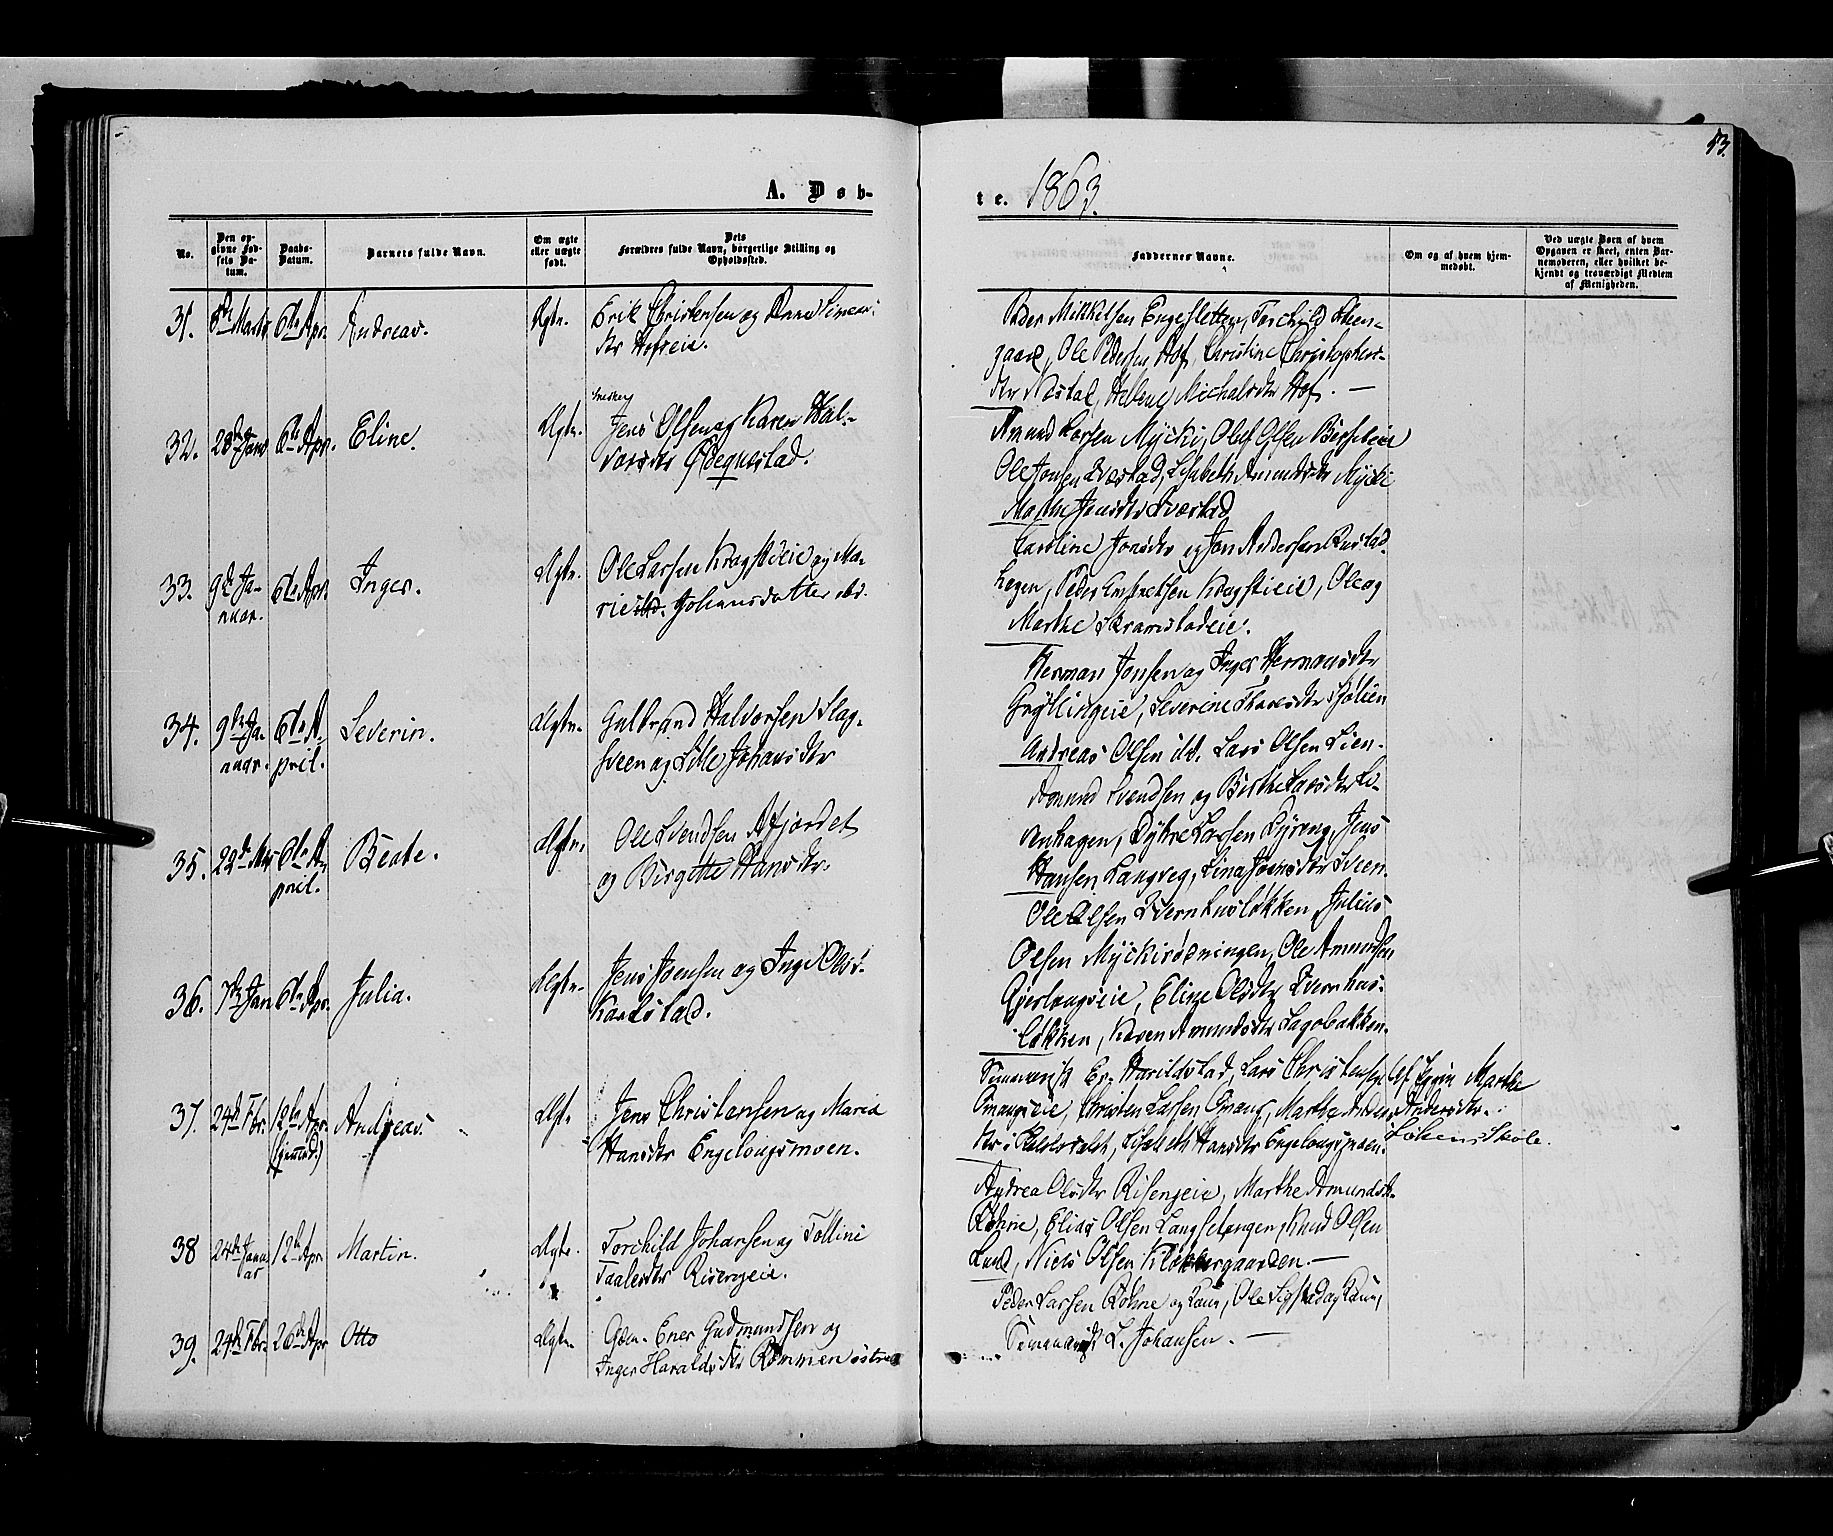 53.
A. Døb-
te. 1863.
No.
Den op-
givne Fød-
sels Da-
tum.
Daabs-
Datum.
Barnets fulde Navn.
Om ægte
eller uægte
født.
Dets
Forældres fulde Navn, borgerlige Stilling og
Opholdssted.
Faddernes Navne.
Om og af hvem hjem-
medøbt.
Ved uægte Børn af hvem
Opgaven er skeet, enten Bar-
nemoderen, eller hvilket be-
kjendt og troværdigt Medlem
af Menigheden.
31. 8de Marts 6te Apr. Andreas. Ægte. Erik Christensen og Anne Simens-
dtr Hofseie.
Peder Mikkelsen Engesletten, Torchild
gaard, Ole Pedersen Hof, Christine Christophers-
dtr Nøstal, Helene Michalsdtr Hof. —
32. 28de Janr 6te Apr. Eline. Ægte. Jens Olsen og Karen Hal-
vorsdtr Ødegnestad.
Amund Larsen Mycki, Oluf Olsen
Ole Jonsen Sværstad, Lisabeth Amundsdtr Mycki
Jensdtr Sværstad
33. 9de Ja-
nuar. 6te Apr. Inger. Ægte. Ole Larsen Kragstieie og Ma-
rie Johansdatter ibd.
Caroline Jonsdtr og Jon Andersen Rustad-
hagen, Peder Kragstieie, Ole og
Marthe Skramstadeie.
34. 9de Ja-
nuar. 6te A-
pril. Severin. Ægte. Gulbrand Halvorsen Slag-
sveen og Lille Johansdtr
Herman Jonsen og Inger Hermansdtr
Gryllingeie, Severine
Andreas Olsen ibd. Lars Olsen Lien.
35. 22de Mrs 6te A-
pril. Beate. Ægte. Ole Svendsen
og Birgitte Hansdtr.
Amund Svendsen og Birthe Larsdtr Lø-
venhagen, Dyhre Larsen Dyreng, Jens
Hansen Langveg, Lina Jensdtr Sveen.
36. 7de Jan 6te Apr. Julia. Ægte. Jens Joensen og Inge Olsd.
Karlstad.
Ole Olsen Kvernhusløkken, Julius
Olsen Myckirødningen, Ole Amundsen
Gjerlaugseie, Eline Olsdtr Kvernhus-
løkken, Karen Amundsdtr Lagobakken.
37. 24de Fbr. 12te Apr.
(hjemmd.) Andreas. Ægte. Jens Christensen og Maria
Hansdtr Engelaugsmoen.
Harildstad, Lars Christensen
Omangeie, Christen Larsen Omang, Marthe Anders-
dtr i Lisabeth Hansdtr Engelaugsmoen.
Af Marthe
Andersdtr.
Løkens Skole.
38 24de Janu-
ar 12te Apr. Martin. Ægte. Torchild Johansen og Tolline
Taalesdtr Risengeie.
Andrea Olsdtr Risengeie, Marthe Amundsdtr
Røhne, Elias Olsen Langselængen, Knud Olsen
Lund, Niels Olsen Klokkergaarden. —
39. 24de Fbr. 26de Apr Otto Ægte. Gaardm. Ener Gudmundsen og
Inger Haraldsdtr Rommen østre
Peder Larsen Røhne og Kone, Ole Sigstad og Kone,
L. Johansen. —